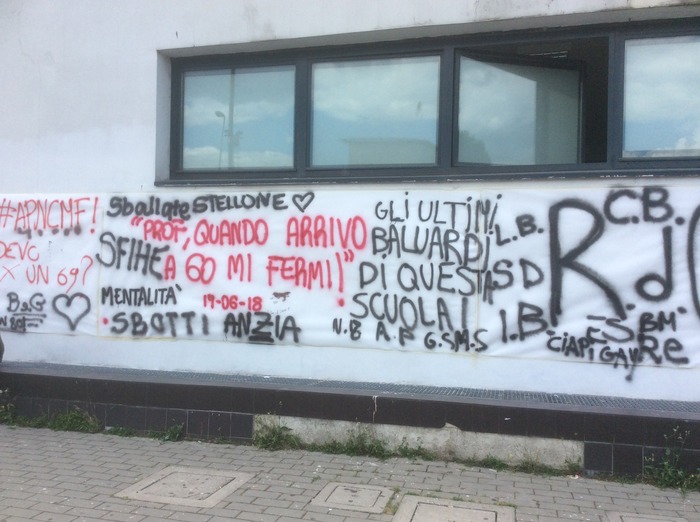 #APNCMF!
DEVO
X UN 69?
B&G
Sballate STELLONE
SFIHE
MENTALITÀ
SBOTTI ANZIA
"PROF, QUANDO ARRIVO
A 60 MI FERMI!"
19-06-18
GLI ULTIMI
BALUARDI
DI QUESTA
SCUOLA!
N.B A.P G.S M.S
L.B.
S D
I.B.
C.B.
R.d
CIAPI GAV
E S.
BM
Re